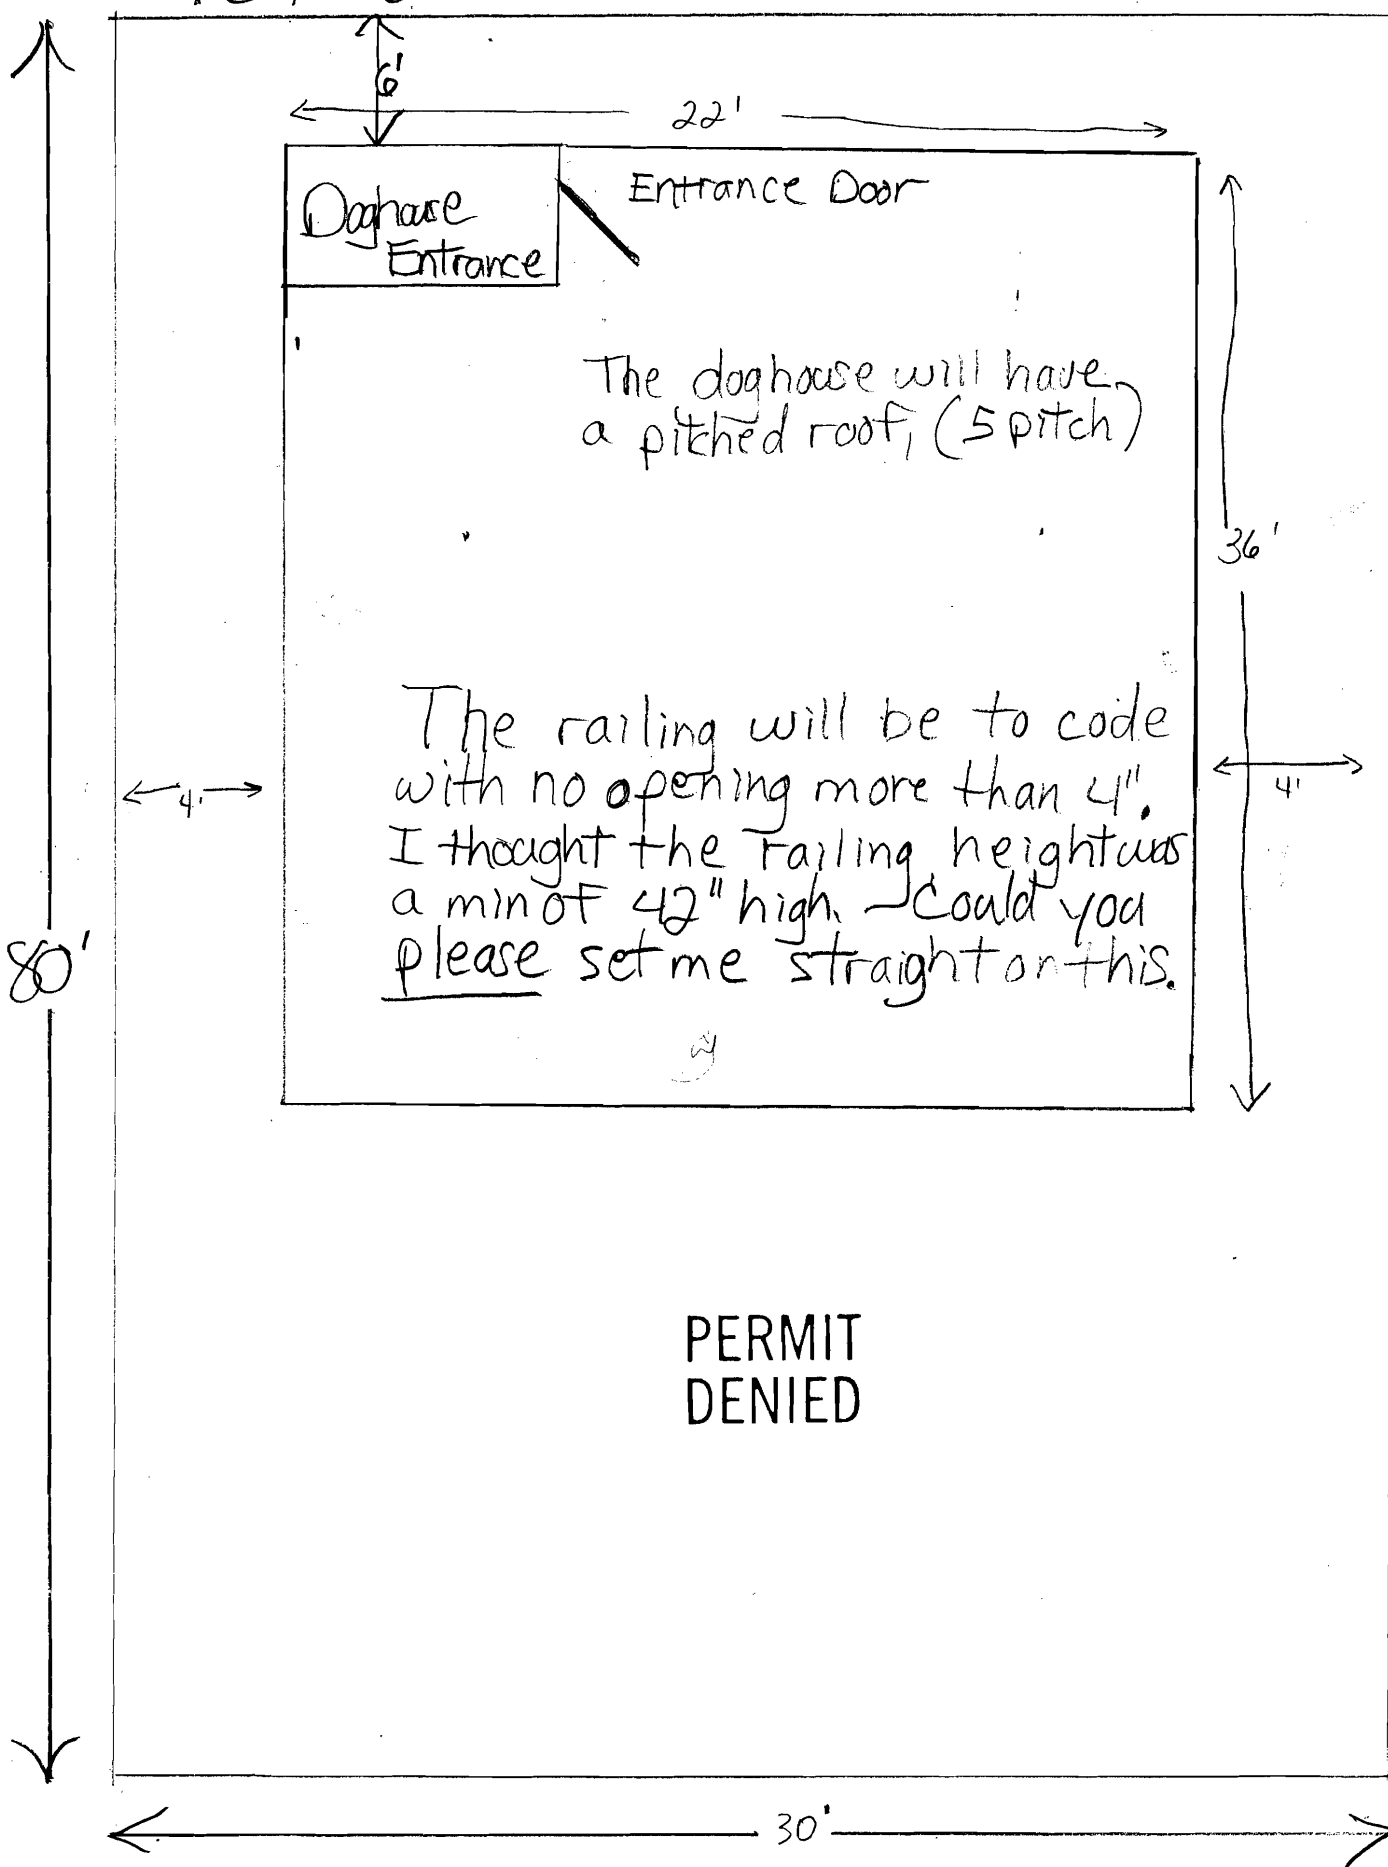 6'
22'
Doghouse
Entrance
Entrance Door
The doghouse will have
a pitched roof, (5 pitch)
36'
The railing will be to code
with no opening more than 4".
I thought the railing height was
a min of 42" high. Could you
please set me straight on this.
4'
4'
80'
PERMIT
DENIED
30'